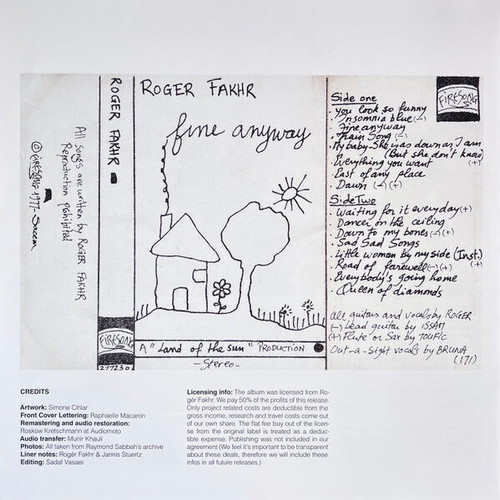 All songs are written by ROGER FAKHR
Reproduction prohibited
© FIRESONG 1977. Sacem
ROGER FAKHR
FIRESONG
ROGER FAKHR
fine anyway
A "Land of the sun" PRODUCTION
- Stereo -
Side one
you look so funny
Insomnia blue (-)
Fine anyway
Train Song (-)
My baby. She was down as I am
(But she don't know)
Everything you want (+)
Part of any place
Dawn (-) (+)
Side Two
Waiting for it everyday (+)
Dancer on the ceiling
Down to my bones (-) (+)
Sad Sad Songs
Little woman by my side (Inst.)
Road of farewell (-) (+) (+)
Everybody's going home
Queen of diamonds
FIRESONG
all guitars and vocals by ROGER
(-) Lead guitar by ISSAM
(+) Flute or Sax by TOUFIC
Out-a-Sight vocals by BRUNA
CREDITS
Artwork: Simone Cihlar
Front Cover Lettering: Raphaelle Macaron
Remastering and audio restoration:
Roskow Kretschmann at Audiomoto
Audio transfer: Munir Khauli
Photos: All taken from Raymond Sabbah's archive
Liner notes: Rogér Fakhr & Jannis Stuertz
Editing: Sadaf Vasaei
Licensing info: The album was licensed from Ro-
gér Fakhr. We pay 50% of the profits of this release.
Only project related costs are deductible from the
gross income, research and travel costs come out
of our own share. The flat fee buy out of the licen-
se from the original label is treated as a deduc-
tible expense. Publishing was not included in our
agreement (We feel it's important to be transparent
about these deals, therefore we will include these
infos in all future releases.)